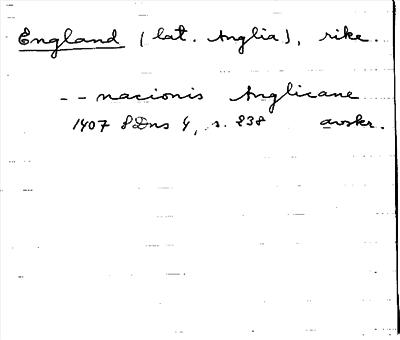 England (lat. Anglia), rike.
-- nacionis Anglicane
1407 SDns 4, s. 238 avskr.